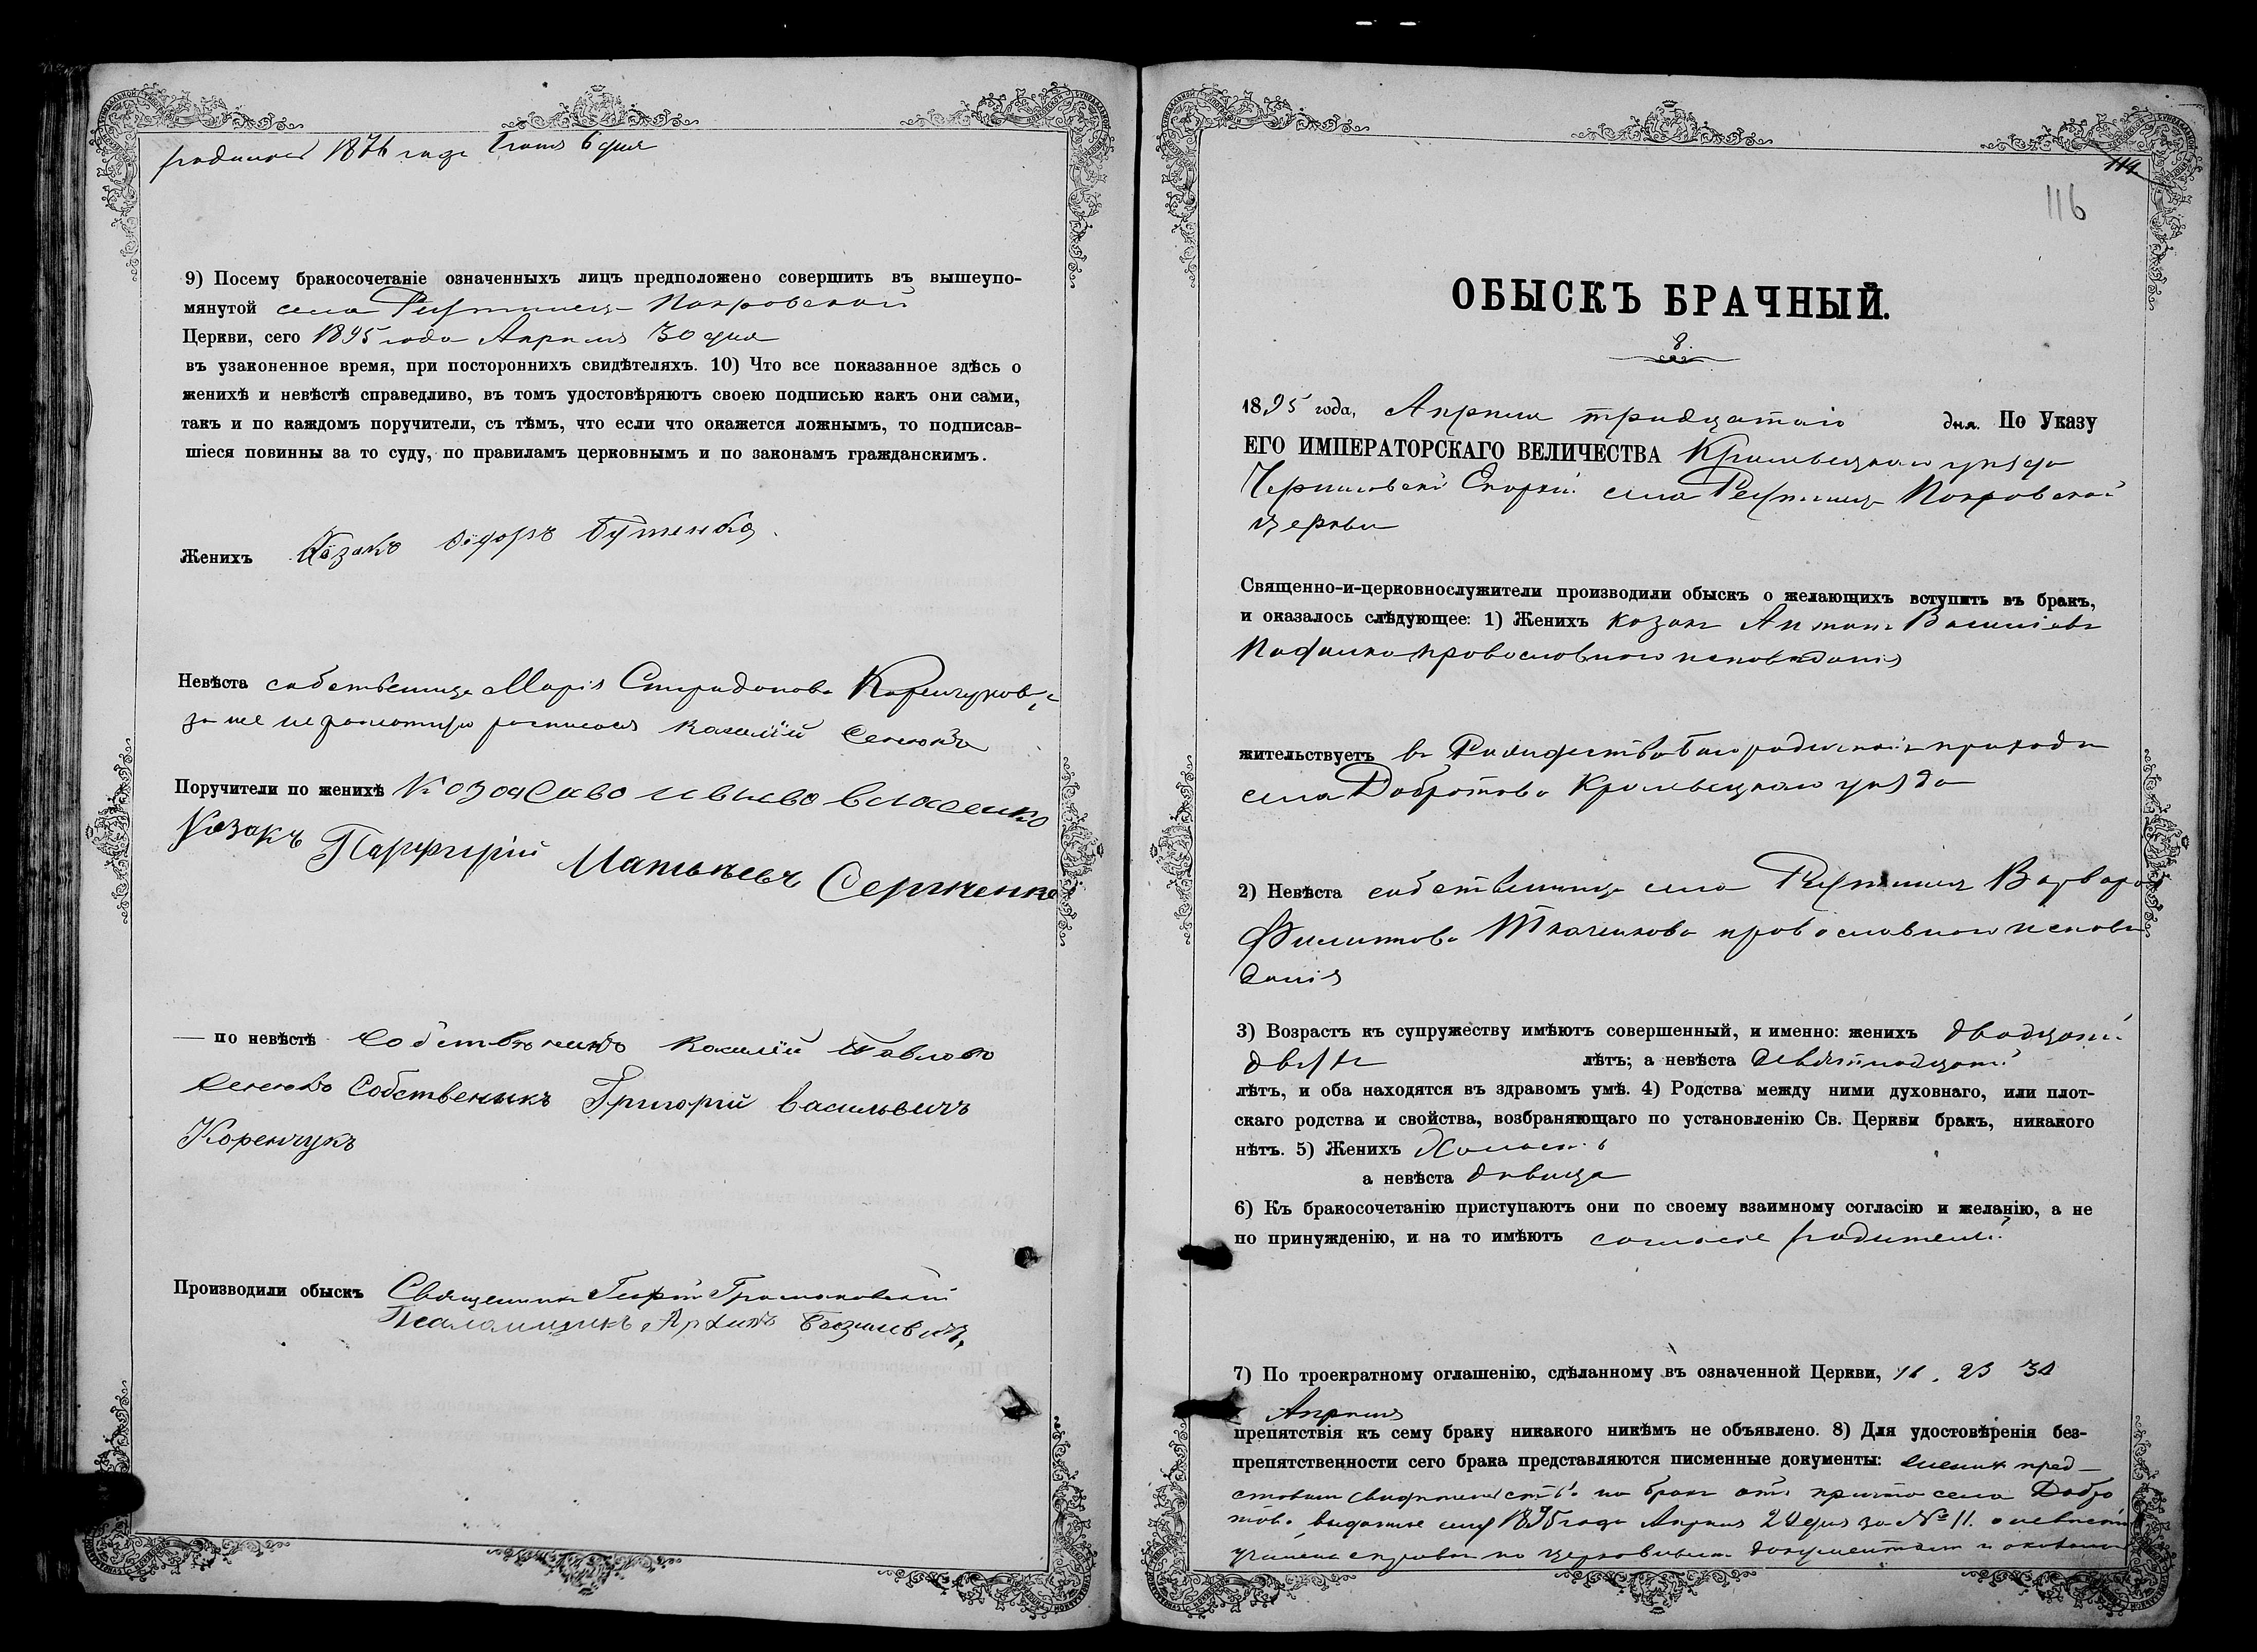 родилась 1876 года Iюня 6 дня
9) Посему бракосочетаніе означенныхъ лицъ предположено совершить въ вышеупо-
мянутой села Рутинецъ Покровской
Церкви, сего 1895 года Апрѣля 30 дня
въ узаконенное время, при постороннихъ свидѣтеляхъ. 10) Что все показанное здѣсь о
женихѣ и невѣстѣ справедливо, въ томъ удостовѣряютъ своею подписью какъ они сами,
такъ и по каждомъ поручители, съ тѣмъ, что если что окажется ложнымъ, то подписав-
шіеся повинны за то суду, по правиламъ церковнымъ и по законамъ гражданскимъ.
Женихъ Козакъ Ѳедоръ Бутенко
Невѣста собственица Марія Спиридонова Коренчукова
за нее неграмотную росписался Василій Сенюкъ
Поручители по женихѣ Козак Сава
Козакъ Парфирій Матвѣевъ Сергиенко
— по невѣстѣ Собственикъ Василій Павловъ
Сенюкъ Собственикъ Григорій Васильевичъ
Коренчукъ
Производили обыскъ Священникъ Георгій Громаковскій
Псаломщикъ Архипъ Базилевичъ
114
116
ОБЫСКЪ БРАЧНЫЙ.
8.
1895 года, Апрѣля тридцатаго дня. По Указу
ЕГО ИМПЕРАТОРСКАГО ВЕЛИЧЕСТВА Кролевецкаго уѣзда
Черниговской Епархіи села Рутинецъ Покровской
церкви
Священно-и-церковнослужители производили обыскъ о желающихъ вступить въ бракъ,
и оказалось слѣдующее: 1) Женихъ козакъ Антонъ Василіевъ
православнаго исповѣданія
жительствуетъ въ Рождество Богородичной прихода
села Добротова Кролевецкаго уѣзда
2) Невѣста собственница села Рутинецъ Варвара
Филиппова Ткаченкова православнаго исповѣ
данія
3) Возрастъ къ супружеству имѣютъ совершенный, и именно: женихъ двадцати
двухъ лѣтъ; а невѣста девятнадцати
лѣтъ, и оба находятся въ здравомъ умѣ. 4) Родства между ними духовнаго, или плот-
скаго родства и свойства, возбраняющаго по установленію Св. Церкви бракъ, никакого
нѣтъ. 5) Женихъ Холостъ
а невѣста дѣвица
6) Къ бракосочетанію приступаютъ они по своему взаимному согласію и желанію, а не
по принужденію, и на то имѣютъ согласіе родителей
7) По троекратному оглашенію, сдѣланному въ означенной Церкви, 16. 23 30
Апрѣля
препятствія къ сему браку никакого никѣмъ не объявлено. 8) Для удостовѣренія без-
препятственности сего брака представляются писменные документы: женихъ пред—
ставилъ свидѣтельство на бракъ отъ причта села Добро
това выданное ему 1895 года Апрѣля 24 дня за № 11. о невѣстѣ
учинена справка по церковнымъ документамъ и оказалось